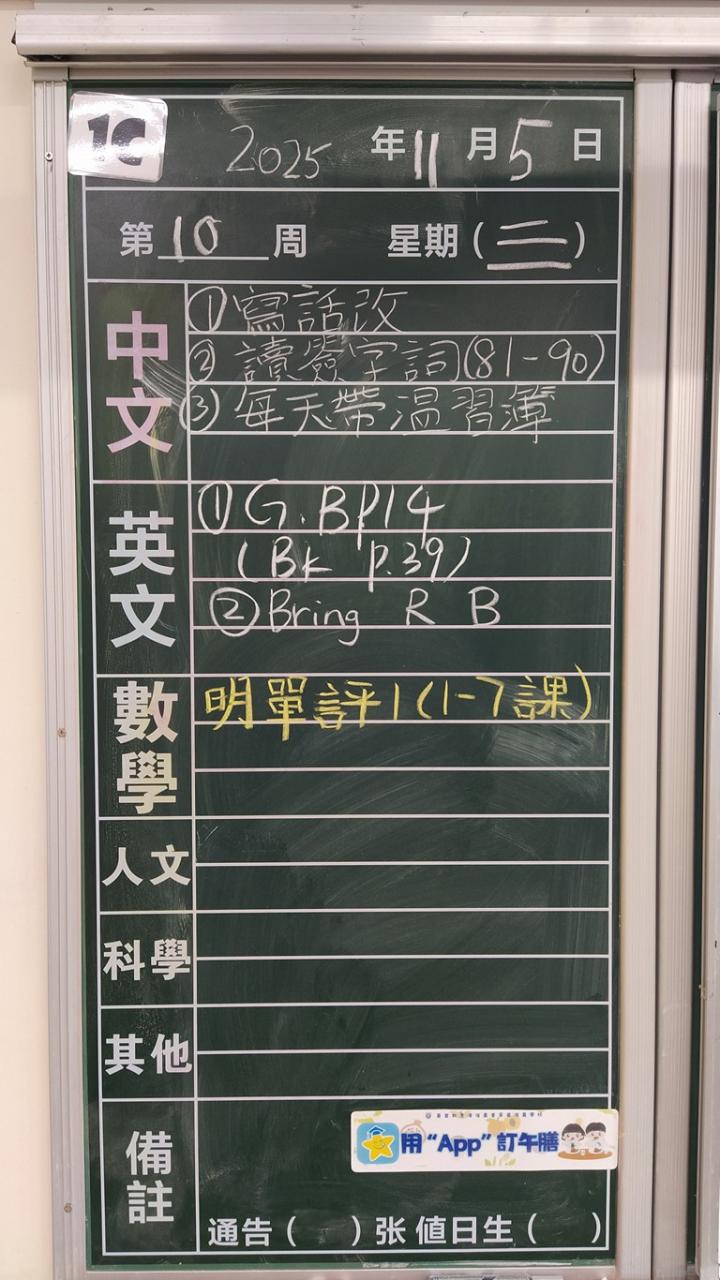 1C
2025 年 11 月 5 日
第 10 周 星期（三）
中文
① 寫話改
② 讀簽字詞(81-90)
③ 每天帶温習簿
英文
① G.BP14
(Bk p.39)
② Bring R B
數學
明單評1(1-7課)
人文
科學
其他
備註
用“App”訂午膳
通告（ ）张 值日生（ ）